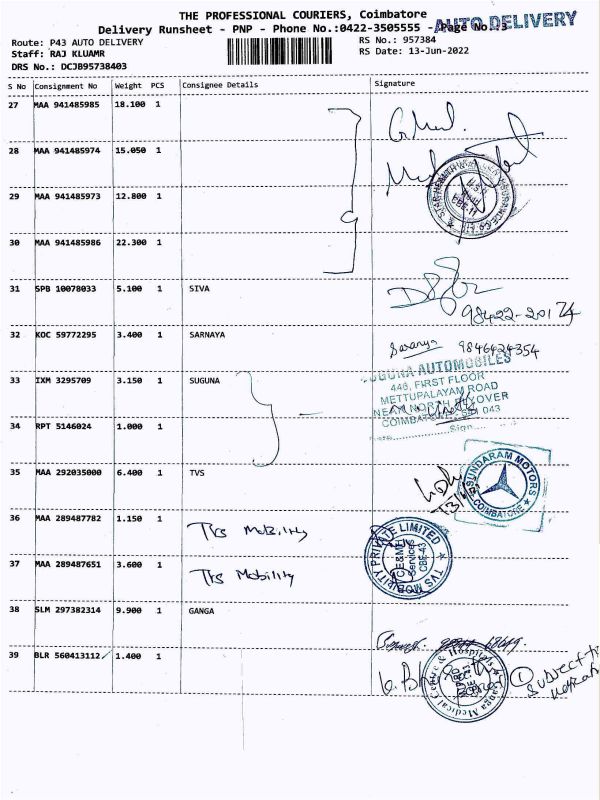 THE PROFESSIONAL COURIERS, Coimbatore
Delivery Runsheet - PNP - Phone No.:0422-3505555 - Page No.:3
AUTO DELIVERY
Route: P43 AUTO DELIVERY
RS No.: 957384
Staff: RAJ KLUAMR
RS Date: 13-Jun-2022
DRS No.: DCJB95738403
S No Consignment No Weight PCS Consignee Details Signature
27 MAA 941485985 18.100 1
28 MAA 941485974 15.050 1
29 MAA 941485973 12.800 1
30 MAA 941485986 22.300 1
31 SPB 10078033 5.100 1 SIVA
98422-20174
32 KOC 59772295 3.400 1 SARNAYA
Saranya 9846424354
33 IXM 3295709 3.150 1 SUGUNA
SUGUNA AUTOMOBILES
446, FIRST FLOOR
METTUPALAYAM ROAD
NEAR NORTH FLYOVER
COIMBATORE 641 043
34 RPT 5146024 1.000 1
Sign
35 MAA 292035000 6.400 1 TVS
SUNDARAM MOTORS
COIMBATORE
36 MAA 289487782 1.150 1 TVS Mobility
37 MAA 289487651 3.600 1 TVS Mobility
TVS MOBILITY PRIVATE LIMITED
Services
CBE-43
38 SLM 297382314 9.900 1 GANGA
39 BLR 560413112 1.400 1
Ganga Medical Centre & Hospitals
Subject to